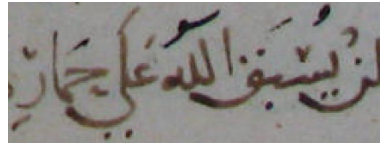 لن يُسْبَق اللّه عَلَي حِمَارٍ